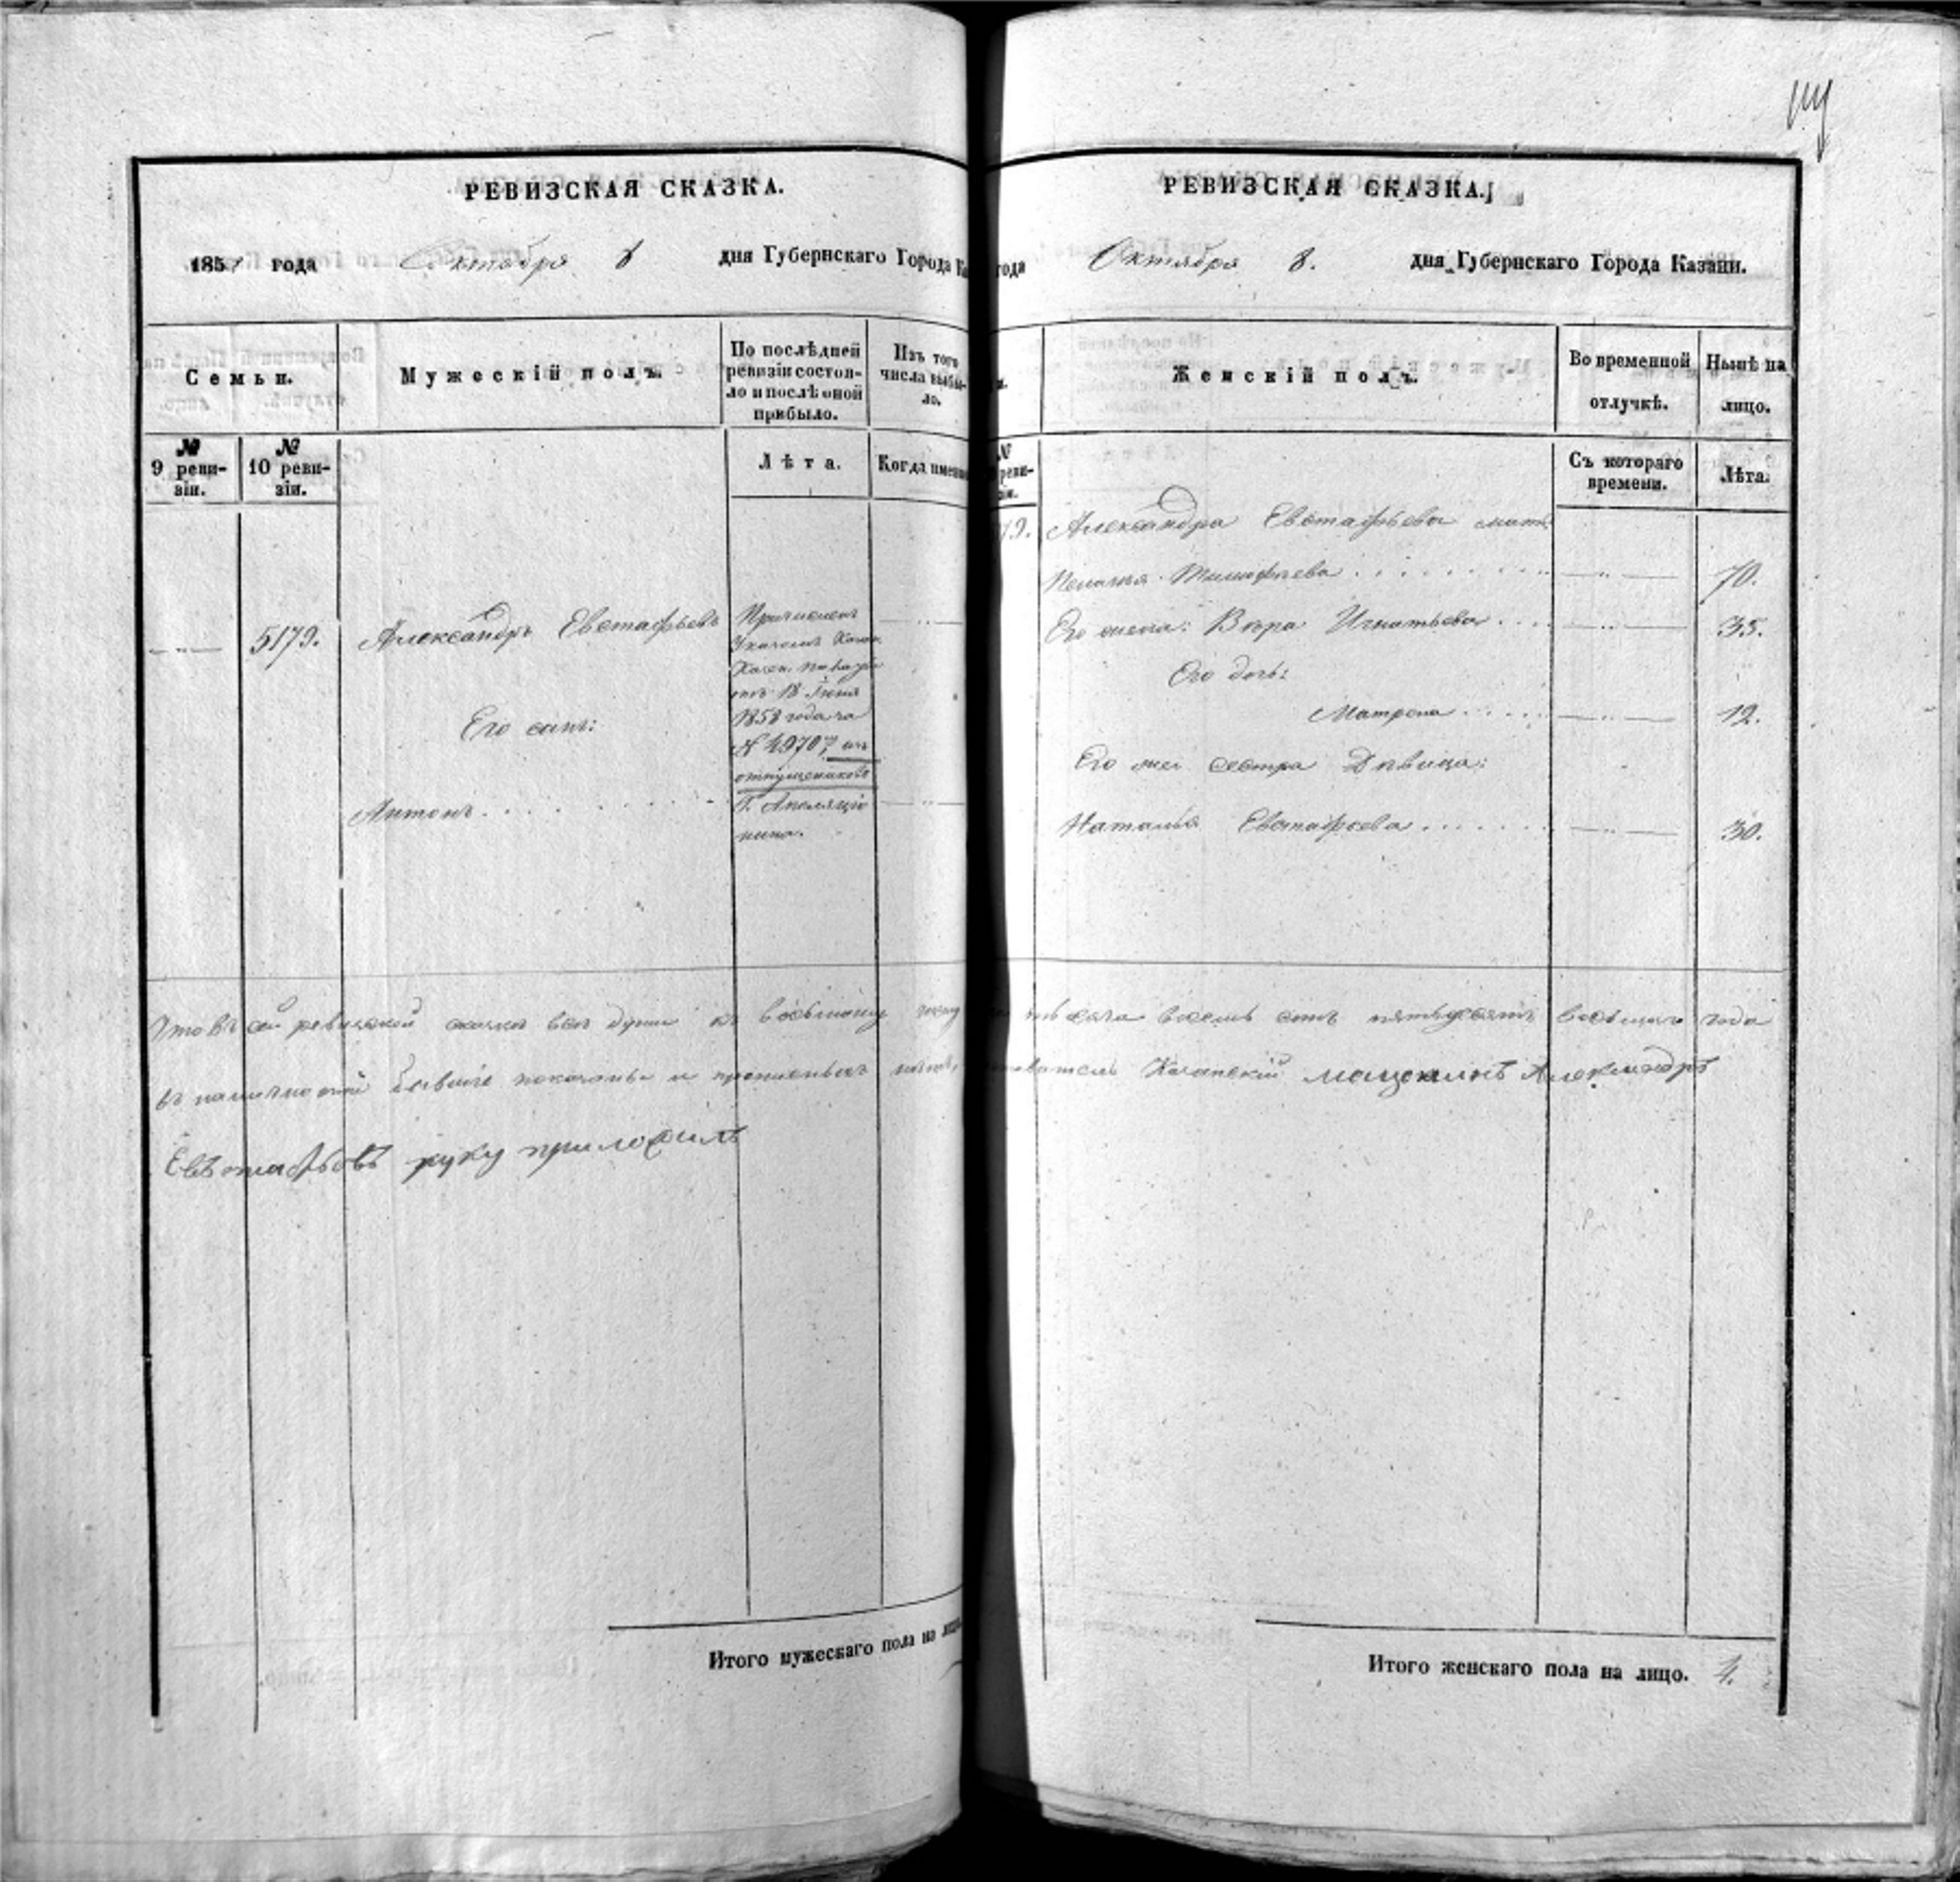 РЕВИЗСКАЯ СКАЗКА.
185 года Октября 8 дня Губернскаго Города Ка
Семьи.
Мужескій полъ.
По послѣдней ревизіи состоя-
ло и послѣ оной
прибыло.
Изъ того
числа выбы-
ло.
№
9 реви-
зіи.
№
10 реви-
зіи.
Лѣта.
Когда именно
5179.
Александръ Евстафьевъ
Его сынъ:
Антонъ
Причисленъ
Указомъ Казан.
Казен. Палаты
отъ 18 Іюня
1858 года за
№ 4970, изъ
отпущенниковъ
Г.
Что въ сей ревизской сказке все души къ восьмому
въ наличности бывшіе показаны и прописныхъ нѣтъ,
Евстафьевъ руку приложилъ
Итого мужескаго пола на лицо
РЕВИЗСКАЯ СКАЗКА.
года Октября 8. дня Губернскаго Города Казани.
Женскій полъ.
Во временной
отлучкѣ.
Нынѣ на
лицо.
№
реви-
зіи.
Съ котораго
времени.
Лѣта.
79.
Александра Евстафьева мать
Пелагея Тимофеева 70.
Его жена: Вѣра Игнатьева 35.
Его дочь:
Матрена 12.
Его же сестра Дѣвица:
Наталья Евстафьева 30.
тысяча восемь сотъ пятьдесятъ года
Казанскій мещанинъ Александръ
Итого женскаго пола на лицо. 4.